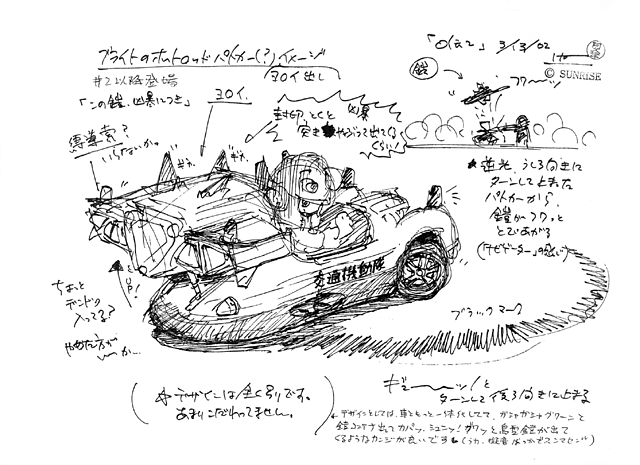 ブライトのホットロッドパトカー(?)イメージ
ヨロイ出し
#2以降登場
「この鎧、凶暴につき」
ヨロイ.
導索?
いらないか。
ギャ. ギャ.
封印とくと 凶暴
突き やぶって出てくる
くらい!
3/13/02
© SUNRISE
鎧
フワ〜ッ
★逆光、うしろ向きに
ターンして止まった
パトカーから、
鎧がフワッと
とびあがる
交通機動隊
UP!
ちょっと
入ってる?
やめた方が
か…
ブラックマーク
(☆デザインは全くラリです。
あまりこだわってません。)
ギュ〜〜ッ!と
ターンして後ろ向きに止まる
デザインとしては、車ともっと一体化してて、ガシャガシャグワーンと
鎧コンテナ出てカパッ、シュシュッ!ガワッと鳥型鎧が出て
くるようなカンジが良いです